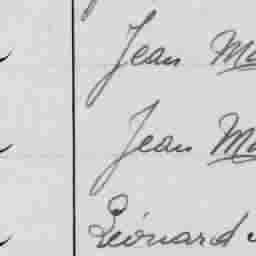 Jean
Jean
Léonard